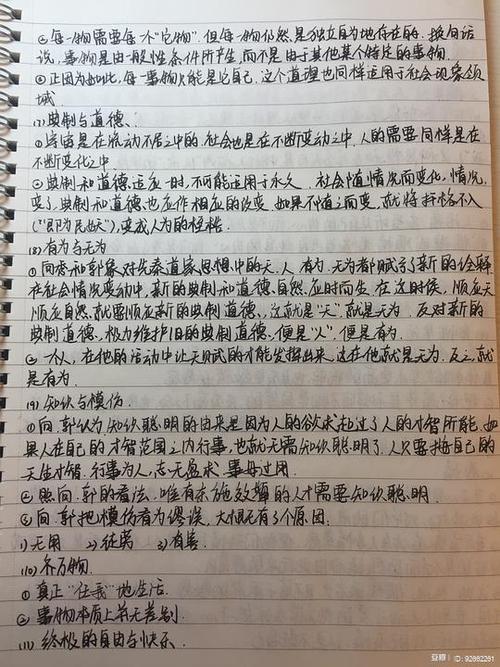 ②每一物需要每一个“它物”.但每一物仍然是独立自为地存在的.换句话
说,事物是由一般性条件所产生,而不是由于其他某个特定的事物.
③正因为如此,每一事物只能是它自己.这个道理也同样适用于社会现象领
域.
(7)典制与道德.
①宇宙是在流动不居之中的.社会也是在不断变动之中.人的需要同样是在
不断变化之中
②典制和道德适应一时,不可能适用于永久.社会随情况而变化,情况
变了.典制和道德也应作相应的改变.如果不随之而变,就将扞格不入
(“即为民妖”),变成人为的桎梏.
(8)有为与无为
①向秀和郭象对先秦道家思想中的天.人.有为.无为都赋予了新的诠释.
在社会情况变动中.新的典制和道德.自然应时而生.在这时候,顺应天
顺应自然.就要顺应新的典制道德.,这就是“天”就是无为.反对新的
典制道德.极力维护旧的典制道德.便是“人”.便是有为.
②一个人,在他的活动中让天赋的才能发挥出来.这在他就是无为.反之.就
是有为.
(9)知识与模仿.
①向.郭认为知识聪明的由来是因为人的欲求超过了人的才智所能.如
果人在自己的才智范围之内行事,也就无需知识聪明了.人只要按自己的
天生才智.行事为人,志无盈求.事毋过用.
②照向.郭的看法.唯有东施效颦的人才需要知识聪明.
③向.郭把模仿看为谬误,大概有了个原因.
1)无用 2)徒劳 3)有害.
(10)齐万物
①真正“任我”地生活.
②事物本质上并无差别.
(11)终极的自由与快乐.
豆瓣 ID:92882281